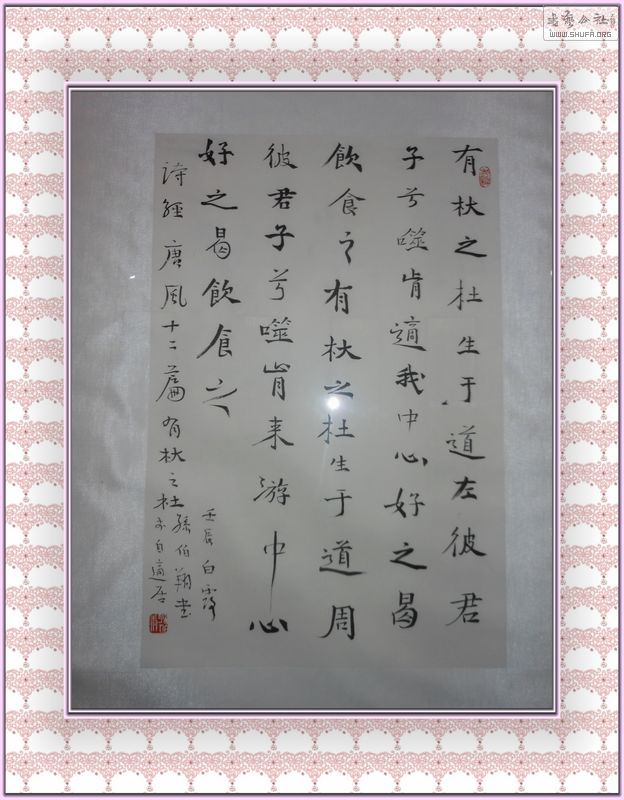 有杕之杜生于道左彼君
子兮噬肯適我中心好之曷
飲食之有杕之杜生于道周
彼君子兮噬肯来游中心
好之曷飲食之
詩經唐風十二篇有杕之杜
壬辰白露
孫伯翔書
于自適居
书艺公社
WWW.SHUFA.ORG